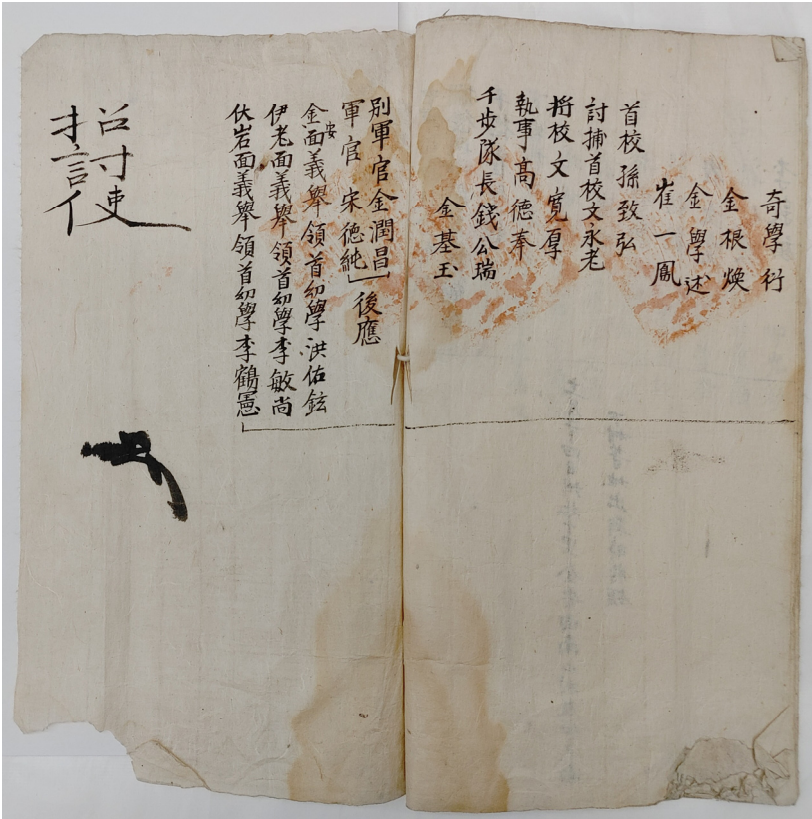 奇學衍
金根煥
金學述
崔一鳳
首校 孫致弘
討捕首校文永老
將校 文寬厚
執事 高德奉
千步隊長錢公瑞
金基玉
別軍官金潤昌
軍官 宋德純 後應
金安面義擧領首幼學 洪佑鉉
伊老面義擧領首幼學李敏尚
伏岩面義擧領首幼學李鶴憲
招討使